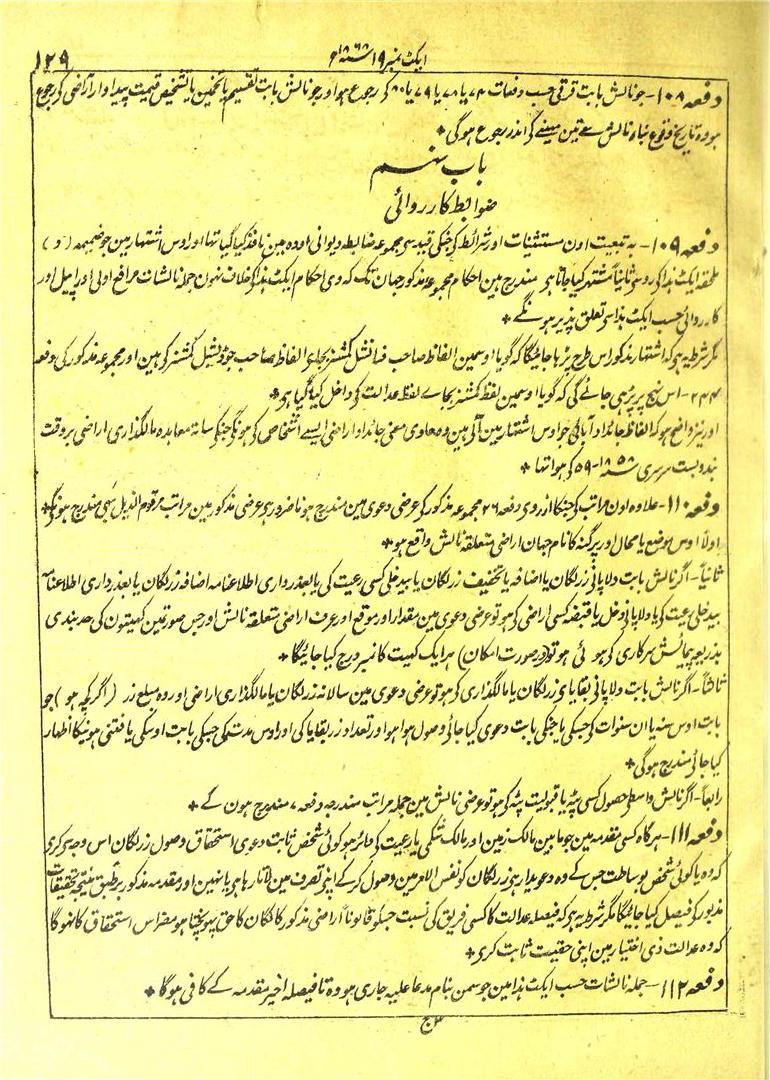 ایکٹ نمبر ۱۹ سنہ ۱۸۶۸ء
۱۲۹
دفعہ ۱۰۸- جو نالش بابت قرقی حسب دفعات ۷۴ یا ۷۸ یا ۷۹ یا ۸۰ کے رجوع ہو اور جو نالش بابت تقسیم یا تخمین یا تشخیص قیمت پیداوار آراضی کے رجوع
ہو وہ تاریخ وقوع بناء نالش سے تین مہینے کے اندر رجوع ہوگی *
باب نہم
ضوابط کارروائی
دفعہ ۱۰۹- بہ تبعیت اون مستثنیات اور شرائط کے جنکی قید سے مجموعہ ضابطہ دیوانی اودہ مین نافذ کیا گیا تھا اور اوس اشتہار مین جو ضمیمہ (و)
ملحقہ ایکٹ ہذا کی روسی ثانیاً مشتہر کیا جاتا ہی مندرج ہین احکام مجموعہ مذکور جہان تک کہ وی احکام ایکٹ ہذا کے خلاف نہون جملہ نالشات مرافع اولی اور اپیل اور
کارروائی حسب ایکٹ ہذا سے تعلق پذیر ہونگے *
مگر شرط یہ ہی کہ اشتہار مذکور اس طرح پڑہا جائیگا کہ گویا اوسمین الفاظ صاحب فنانشل کمشنر بجای الفاظ صاحب جوڈیشیل کمشنر کے ہین اور مجموعہ مذکور کی دفعہ
۲۴۴- اس نہج پر پڑہی جائے گی کہ گویا اوسمین لفظ کمشنر بجاے لفظ عدالت کے داخل کیا گیا ہو *
اور نیز واضح ہو کہ الفاظ جائداد آبائی جو اوس اشتہار مین آئی ہین وہ حاوی معنی جائداد اراضی ایسے اشخاص کی ہونگی جنکے ساتہ معاہدہ مالگذاری اراضی بروقت
بندوبست سرسری سنہ ۱۸۵۸-۵۹ کے ہوا تھا *
دفعہ ۱۱۰- علاوہ اون مراتب کے جنکا ازروی دفعہ ۲۶ مجموعہ مذکور کے عرضی دعوی مین مندرج ہونا ضرور ہی عرضی مذکور مین مراتب مرقوم الذیل بہی مندرج ہونگی *
اولاً اوس موضع یا محال اور پرگنہ کا نام جہان اراضی متعلقہ نالش واقع ہو *
ثانیاً- اگر نالش بابت دلاپانی زر لگان یا اضافہ یا تخفیف زر لگان یا بیدخلی کسی رعیت کی یا بعذرداری اطلاعنامہ اضافہ زر لگان یا بعذرداری اطلاعنامہ
بیدخلی رعیت کی یا دلاپانی دخل یا قبضہ کسی اراضی کی ہو تو عرضی دعوی مین مقدار اور موقع اور عرف اراضی متعلقہ نالش اور جس صورتمین کہیتون کی حد بندی
بذریعہ پیمائش سرکاری کے ہوئی ہو تو (در صورت امکان) ہر ایک کہیت کا نمبر درج کیا جائیگا *
ثالثاً- اگر نالش بابت دلاپانی بقایای زر لگان یا مالگذاری کی ہو تو عرضی دعوی مین سالانہ زر لگان یا مالگذاری اراضی اور وہ مبلغ زر (اگر کچہ ہو) جو
بابت اوس سنہ یا ان سنوات کی جسکی یا جنکی بابت دعوی کیا جائے وصول ہوا ہو اور تعداد زر بقایا کی اور اوس مدت کی جسکی بابت اوسکی یافتنی ہونیکا اظہار
کیا جائے مندرج ہوگی *
رابعاً- اگر نالش واسطے حصول کسی پٹہ یا قبولیت پٹہ کی ہو تو عرضی نالش مین جملہ مراتب مندرجہ دفعہ ۷ مندرج ہون گے *
دفعہ ۱۱۱- ہر گاہ کسی مقدمہ مین جو مابین مالک زمین اور مالک شکمی یا رعیت کی دائر ہو کوئی شخص ثالث دعوی استحقاق وصول زر لگان اس وجہ سے کری
کہ وہ یا کوئی شخص بوساطت جس کے وہ دعویدار ہے زر لگان کو نفس الامر مین وصول کر کے اپنی تصرف مین لاتا رہا ہی یا نہین اور مقدمہ مذکور بر طبق نتیجہ تحقیقات
مذبور کی فیصل کیا جائیگا مگر شرط یہ ہی کہ فیصلہ عدالت کا کسی فریق کی نسبت جسکو قانوناً اراضی مذکور کا لگان کا حق پہونچتا ہو مضر اس استحقاق کا نہوگا
کہ وہ عدالت ذی اختیار مین اپنی حقیت ثابت کری *
دفعہ ۱۱۲- جملہ نالشات حسب ایکٹ ہذا مین جو سمن بنام مدعا علیہ جاری ہو وہ تا فیصلہ اخیر مقدمہ کے کافی ہوگا *